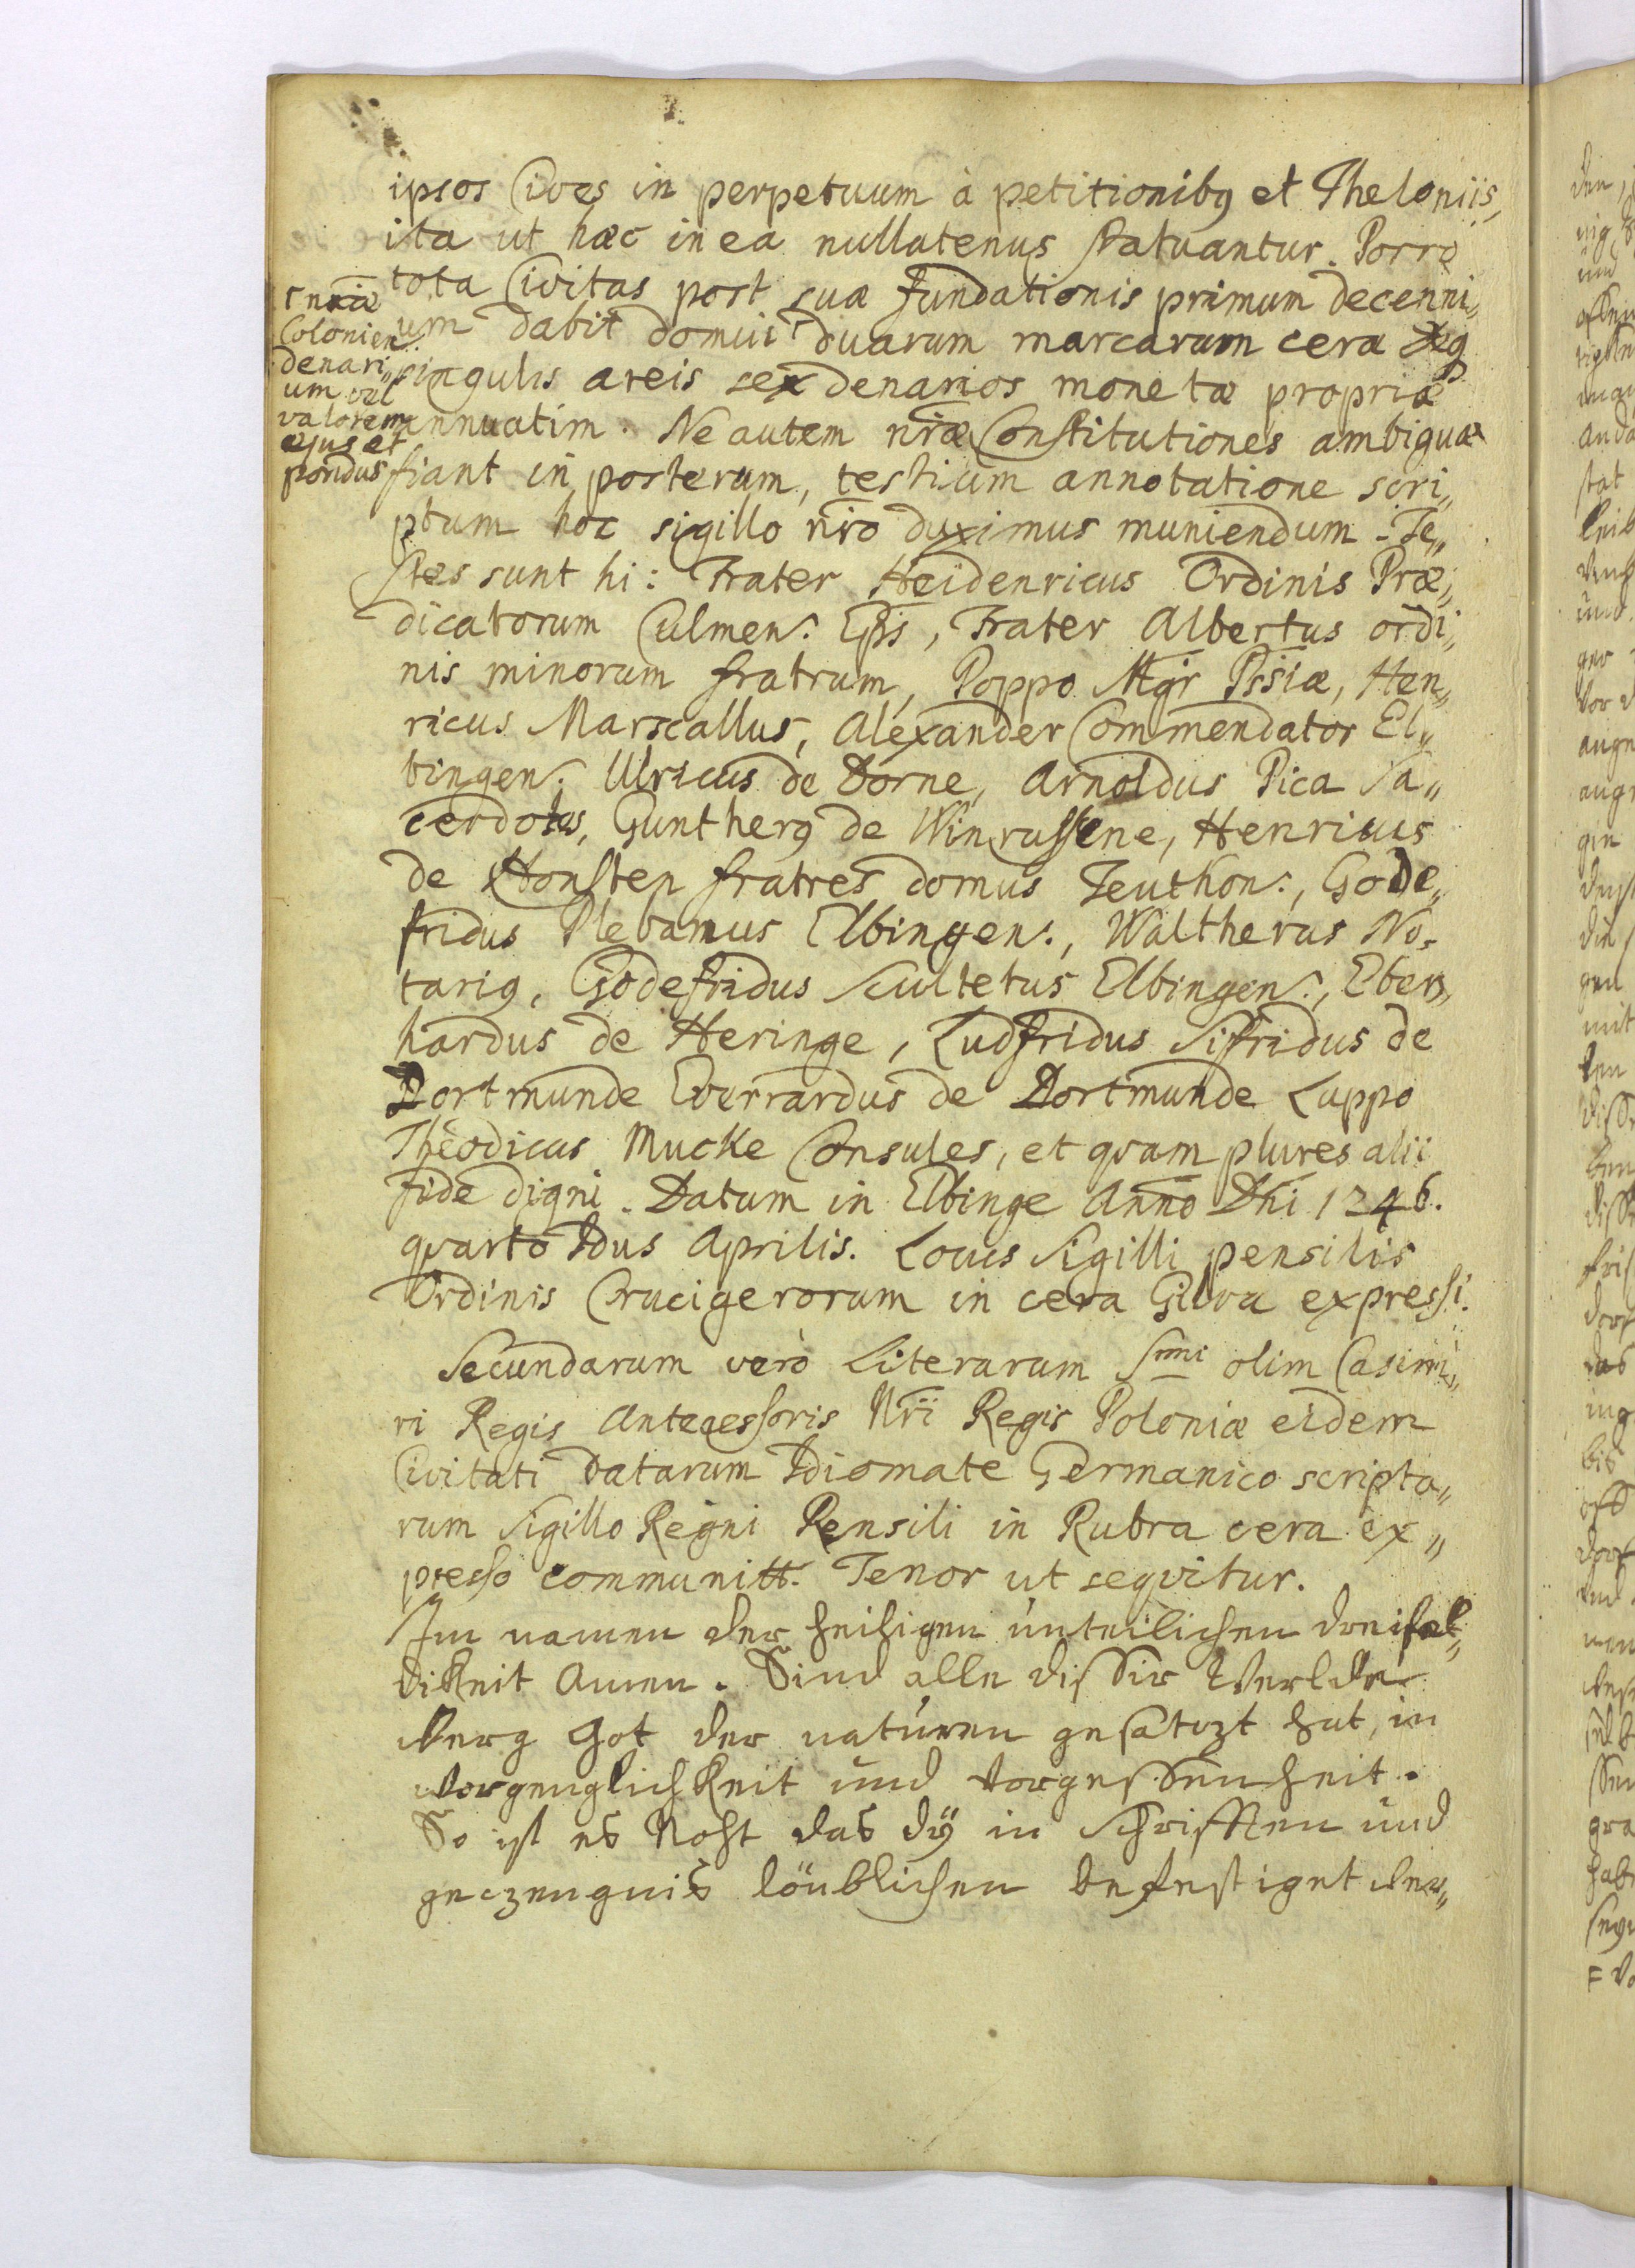 ipsos Cives in perpetuum à petitionibꝯ et Theloniis,
ita ut hæc in ea nullatenus statuantur. Porro
tota Civitas post suæ fundationis primum decenni„
um dabit domui ┌ duarum marcarum cera
singulis areis sex denarios monetæ propriæ
annuatim. Ne autem nr̄æ Constitutiones ambiguæ
fiant in posterum, testium annotatione scri„
ptum hoc sigillo nr̄o duximus muniendum. Te„
stes sunt hi: Frater Heidenricus Ordinis Præ„
dicatorum Culmen: Ep̄s, Frater Albertus ordi„
nis minorum fratrum, Poppo Mgr̄ Pr̄ssiæ, Hen„
ricus Marscallus, Alexander Commendator El„
bingen: Ulricus de Dorne, Arnoldus Pica Sa„
cerdotes, Guntherꝯ de Winrussene, Henricus
de Honsten fratres domus Teuthon:, Gode„
fridus Plebamus Elbingen:, Waltherus No„
tariꝯ, Godefridus Scultetus Elbingen:, Eber„
hardus de Heringe, Ludfridus Sifridus de
Dortmunde Everrardus de Dortmunde Luppo
Theodicus Mucke Consules, et qvam plures alii
fide digni. Datum in Elbinge Anno Dn̄i 1246.
qvarto Idus Aprilis. Locus Sigilli pensilis
Ordinis Crucigerorum in cera Gilva expressi.
Secundarum verò Literarum Smi olim Casimi„
ri Regis Antecessoris Nr̄i Regis Poloniæ eidem
Civitati datarum Idiomate Germanico scripta„
rum Sigillo Regni Pensili in Rubra cera ex„
presso communitt. Tenor ut seqvitur.
Im namen der heiligen unteilichen dreifal„
dikeit Amen. Sind alle disser Werlde
werg Got der naturen gesatczt hat, in
vorgenglichkeit und vorgessenheit.
So ist es Noht das dÿ in Schrifften und
geczeugnis löublichen befestiget wer„
┌ nr̄æ
Colonien:
denari„
um vel
valorem
ejus et
pondus